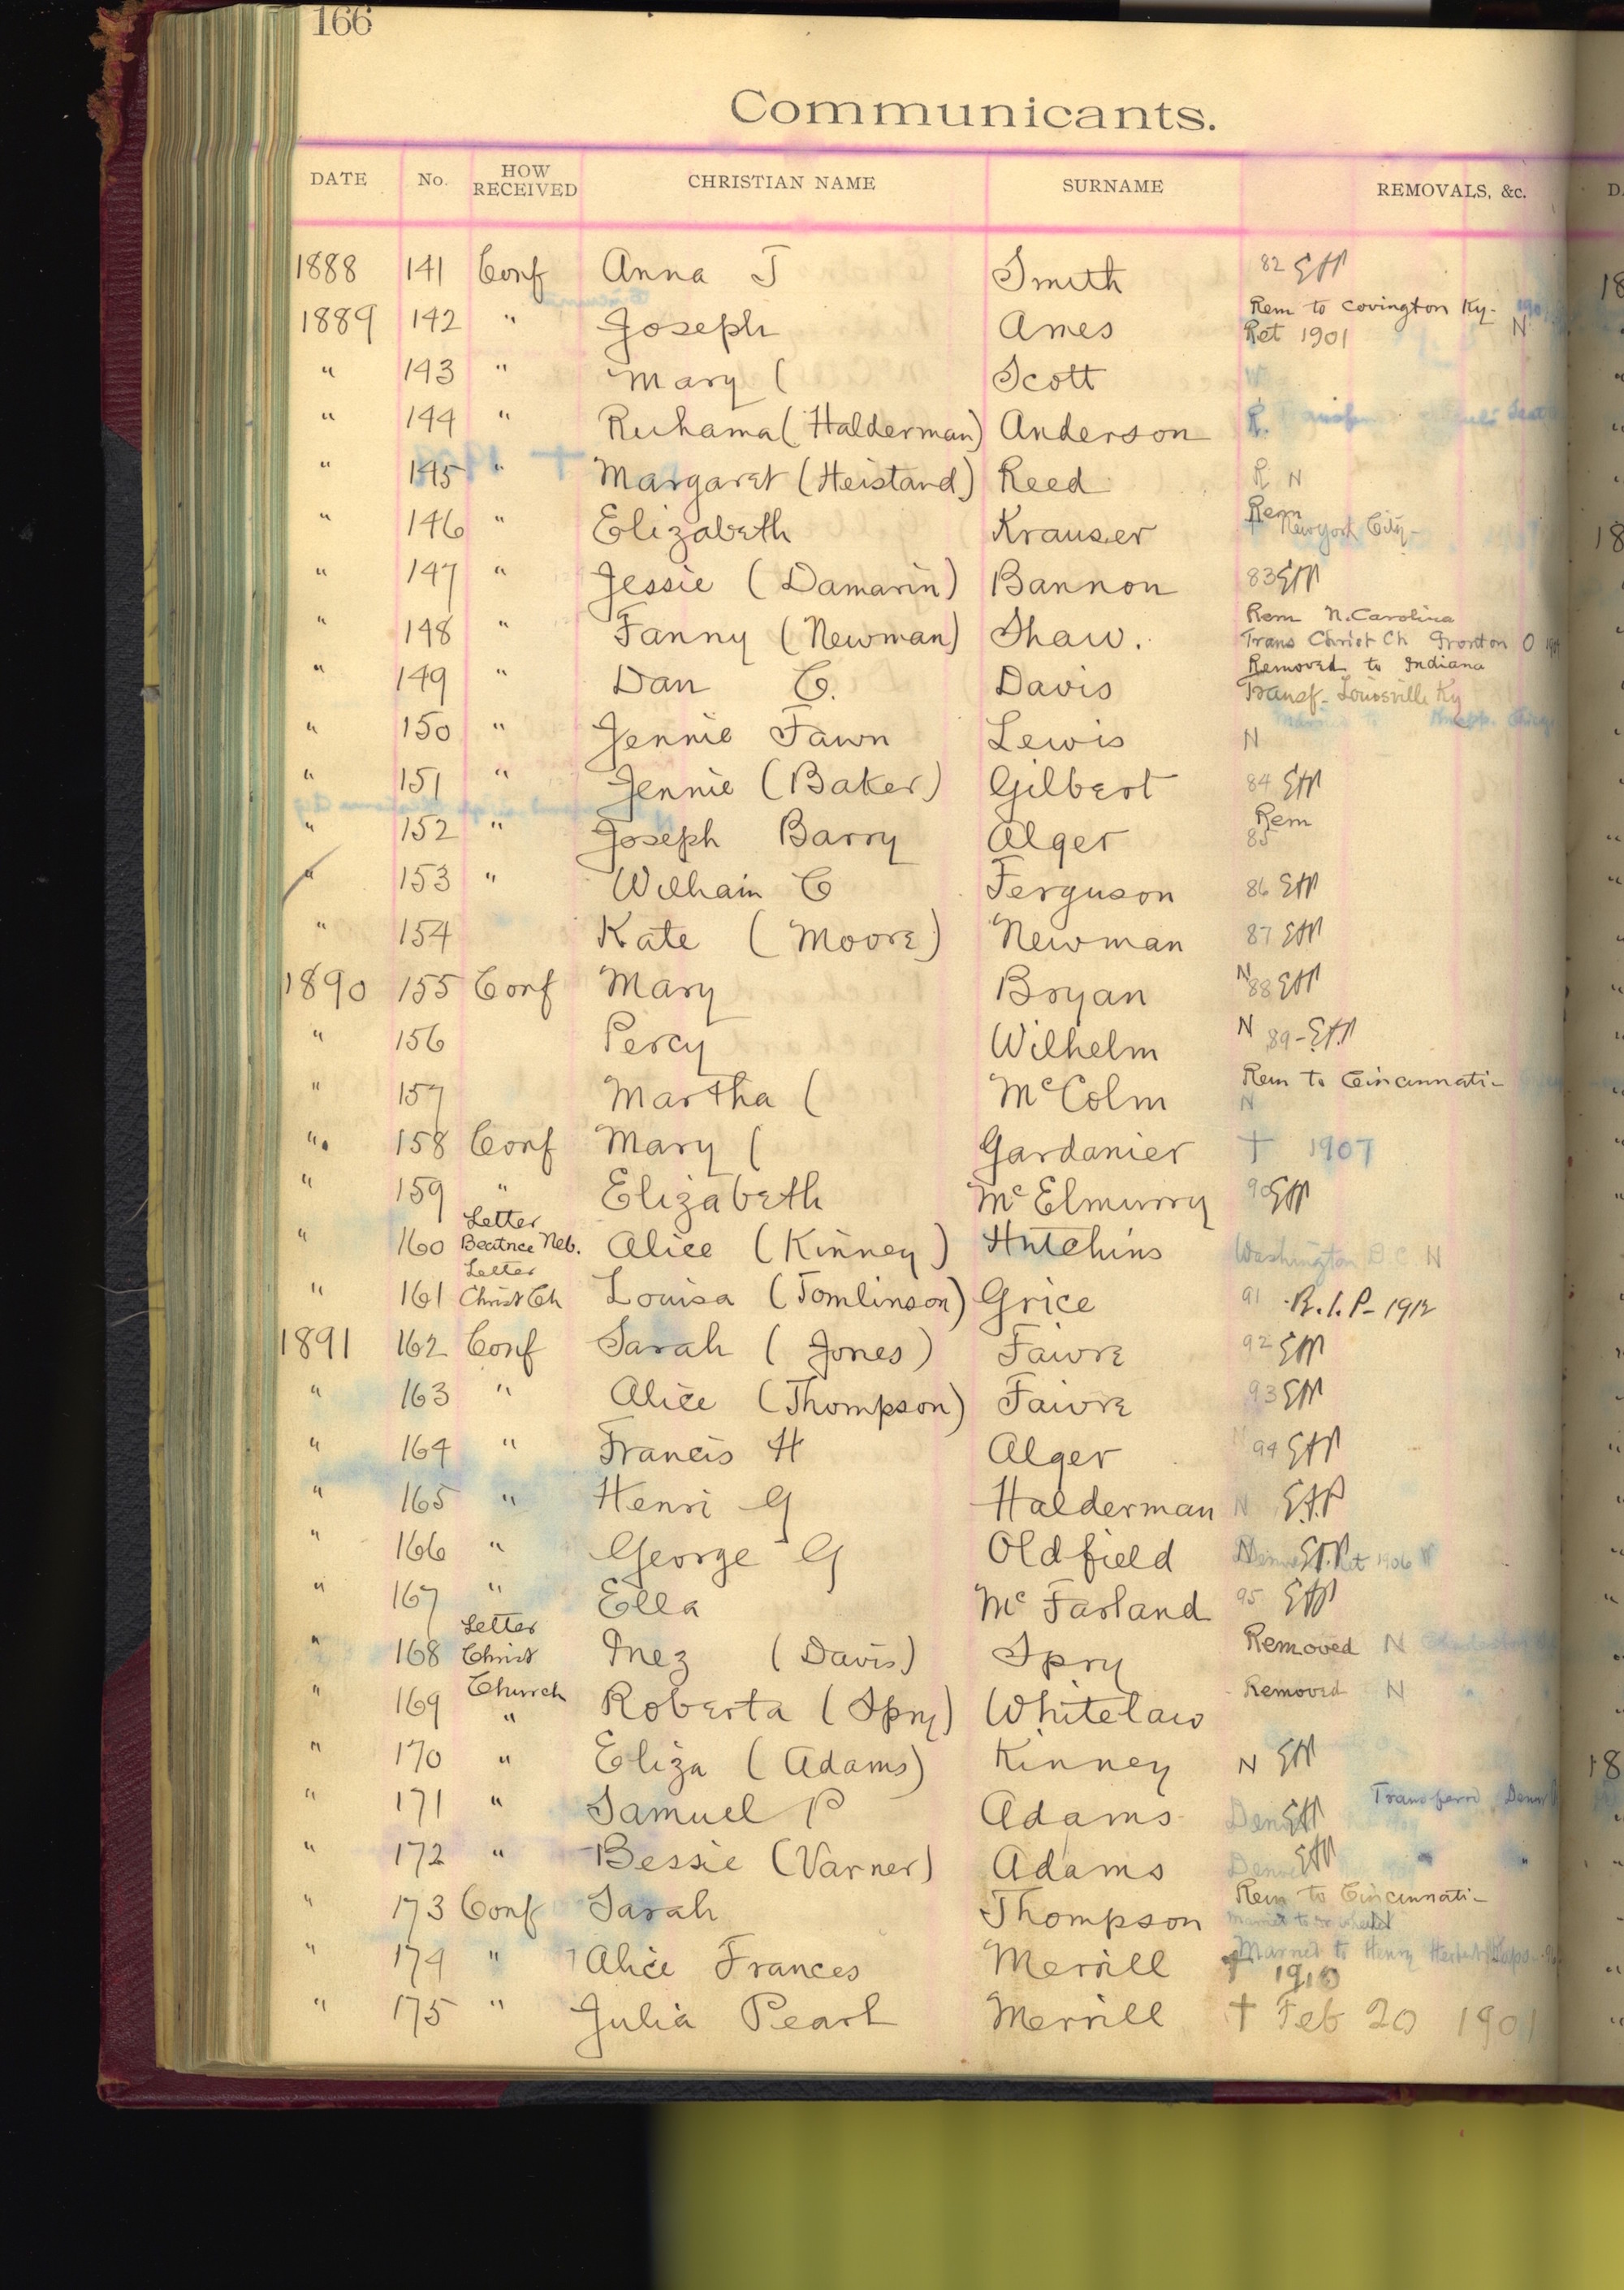 166
Communicants.
DATE No. HOW RECEIVED CHRISTIAN NAME SURNAME REMOVALS, &c.
1888 141 Conf Anna J Smith 82 EAP
1889 142 " Joseph Ames Rem to Covington Ky. Ret 1901 N
" 143 " Mary ( Scott
" 144 " Ruhama (Halderman) Anderson R.
" 145 " Margaret (Heistand) Reed R N
" 146 " Elizabeth Krauser Rem New York City-
" 147 " Jessie (Damarin) Bannon 83 EAP
" 148 " Fanny (Newman) Shaw. Rem N. Carolina Trans Christ Ch Ironton O
" 149 " Dan C. Davis Removed to Indiana Transf- Louisville Ky
" 150 " Jennie Fawn Lewis N
" 151 " Jennie (Baker) Gilbert 84 EAP
" 152 " Joseph Barry Alger Rem 85
" 153 " William C Ferguson 86 EAP
" 154 Kate (Moore) Newman 87 EAP
1890 155 Conf Mary Bryan N 88 EAP
" 156 Percy Wilhelm N 89- EAP
" 157 Martha ( McColm Rem to Cincinnati- N
" 158 Conf Mary ( Gardanier † 1907
" 159 " Elizabeth McElmurry 90 EAP
" 160 Letter Beatrice Neb. Alice (Kinney) Hutchins Washington D.C. N
" 161 Letter Christ Ch Louisa (Tomlinson) Grice 91 R.I.P- 1912
1891 162 Conf Sarah (Jones) Faivre 92 EAP
" 163 " Alice (Thompson) Faivre 93 EAP
" 164 " Francis H Alger 94 EAP
" 165 " Henri G Halderman N E.A.P
" 166 " George G Oldfield EAP Ret 1906
" 167 " Ella McFarland 95 EAP
" 168 Letter Christ Church Inez (Davis) Spry Removed N
" 169 " Roberta (Spry) Whitelaw Removed N
" 170 " Eliza (Adams) Kinney N EAP
" 171 " Samuel P Adams EAP
" 172 " Bessie (Varner) Adams Denver EAP
" 173 Conf Sarah Thompson Rem to Cincinnati-
" 174 " Alice Frances Merrill Married to Henry † 1910
" 175 " Julia Pearl Merrill † Feb 20 1901